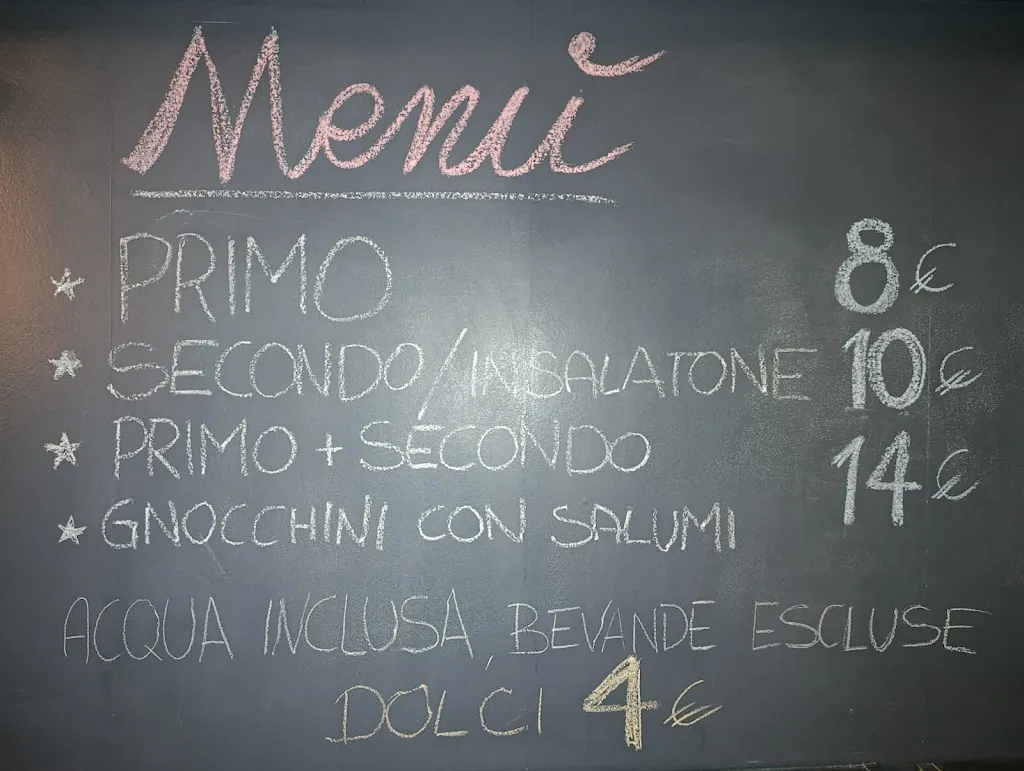 Menù
PRIMO 8€
SECONDO/INSALATONE 10€
PRIMO + SECONDO 14€
GNOCCHINI CON SALUMI
ACQUA INCLUSA, BEVANDE ESCLUSE
DOLCI 4€